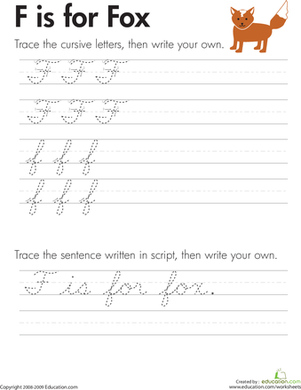 F is for Fox
Trace the cursive letters, then write your own.
F F F
F F F
f f f
f f f
Trace the sentence written in script, then write your own.
F is for fox.
Created by:
education.com
Copyright 2008-2009 Education.com
www.education.com/worksheets